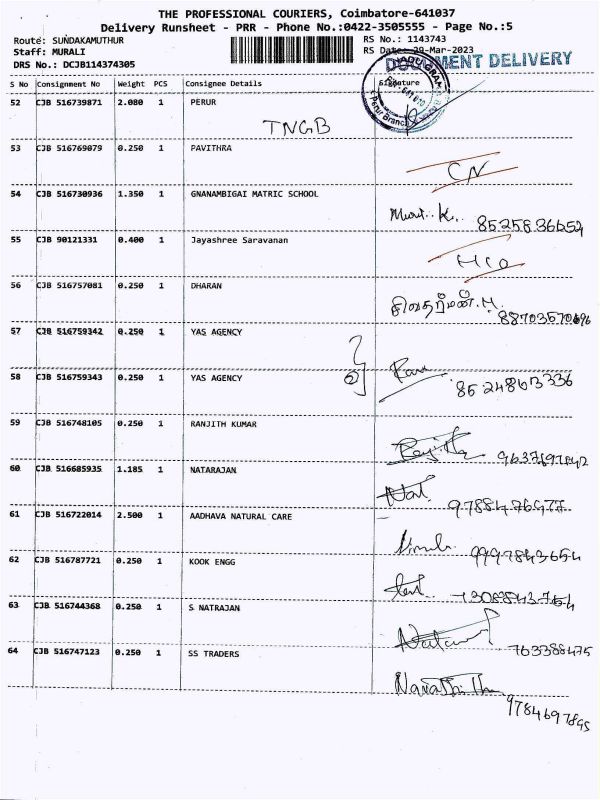 THE PROFESSIONAL COURIERS, Coimbatore-641037
Delivery Runsheet - PRR - Phone No.:0422-3505555 - Page No.:5
Route: SUNDAKAMUTHUR RS No.: 1143743
Staff: MURALI RS Date: 29-Mar-2023
DRS No.: DCJB114374305 DOCUMENT DELIVERY
S No Consignment No Weight PCS Consignee Details Signature
52 CJB 516739871 2.080 1 PERUR
TNGB
53 CJB 516769079 0.250 1 PAVITHRA
CN
54 CJB 516730936 1.350 1 GNANAMBIGAI MATRIC SCHOOL
K. 8525836652
55 CJB 90121331 0.400 1 Jayashree Saravanan
56 CJB 516757081 0.250 1 DHARAN
57 CJB 516759342 0.250 1 YAS AGENCY
58 CJB 516759343 0.250 1 YAS AGENCY
59 CJB 516748105 0.250 1 RANJITH KUMAR
60 CJB 516685935 1.185 1 NATARAJAN
61 CJB 516722014 2.500 1 AADHAVA NATURAL CARE
9997843654
62 CJB 516787721 0.250 1 KOOK ENGG
63 CJB 516744368 0.250 1 S NATRAJAN
763388475
64 CJB 516747123 0.250 1 SS TRADERS
9784697895